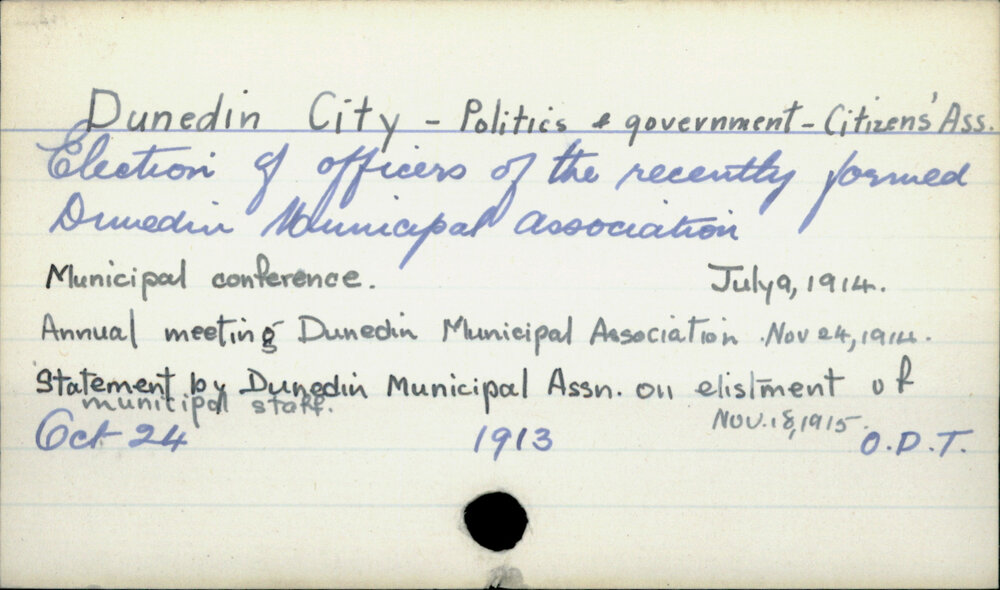 Dunedin City - Politics & government - Citizens' Ass.
Election of officers of the recently formed
Dunedin Municipal Association
Municipal conference. July 9, 1914.
Annual meeting Dunedin Municipal Association. Nov 24, 1914.
Statement by Dunedin Municipal Assn. on elistment of
municipal staff. Nov. 18, 1915.
Oct 24 1913 O.D.T.